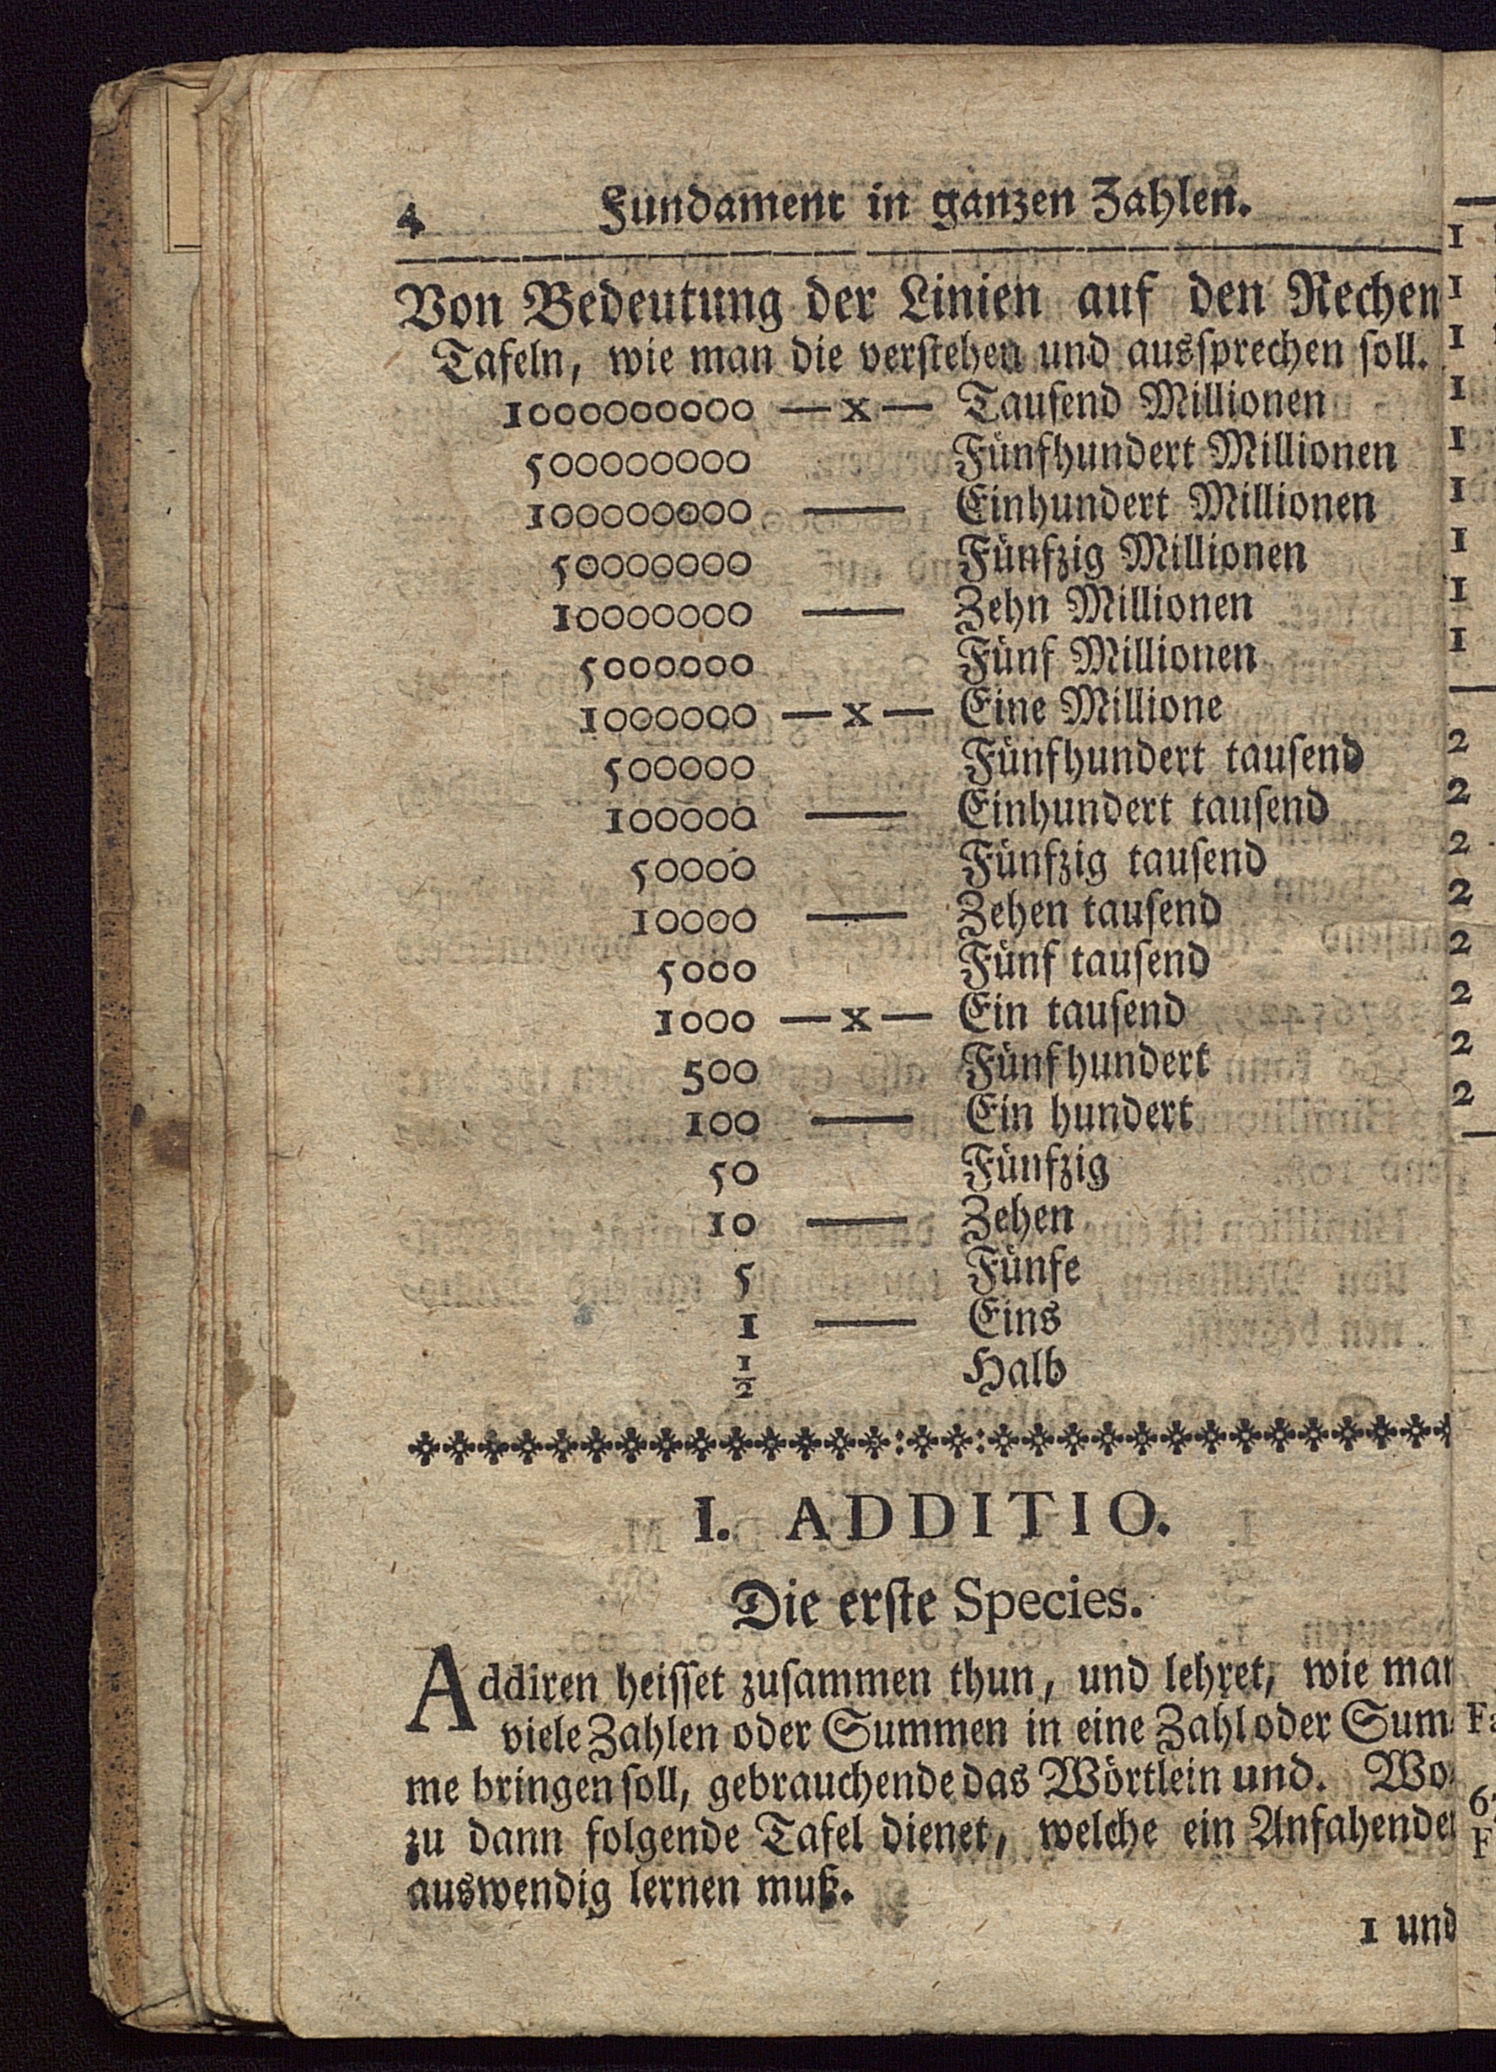 4 Fundament in ganzen Zahlen.
Von Bedeutung der Linien auf den Rechen
Tafeln, wie man die verstehen und aussprechen soll.
1000000000 — x — Tausend Millionen
500000000 Fünfhundert Millionen
100000000 — Einhundert Millionen
50000000 Fünfzig Millionen
10000000 — Zehn Millionen
5000000 Fünf Millionen
1000000 — x — Eine Millione
500000 Fünfhundert tausend
100000 — Einhundert tausend
50000 Fünfzig tausend
10000 — Zehen tausend
5000 Fünf tausend
1000 — x — Ein tausend
500 Fünfhundert
100 — Ein hundert
50 Fünfzig
10 — Zehen
5 Fünfe
1 — Eins
1/2 Halb
I. ADDITIO.
Die erste Species.
Addiren heisset zusammen thun, und lehret, wie man
viele Zahlen oder Summen in eine Zahl oder Sum
me bringen soll, gebrauchende das Wörtlein und. Wo
zu dann folgende Tafel dienet, welche ein Anfahender
auswendig lernen muß.
1 und
1
1
1
1
1
1
1
1
1
2
2
2
2
2
2
2
2